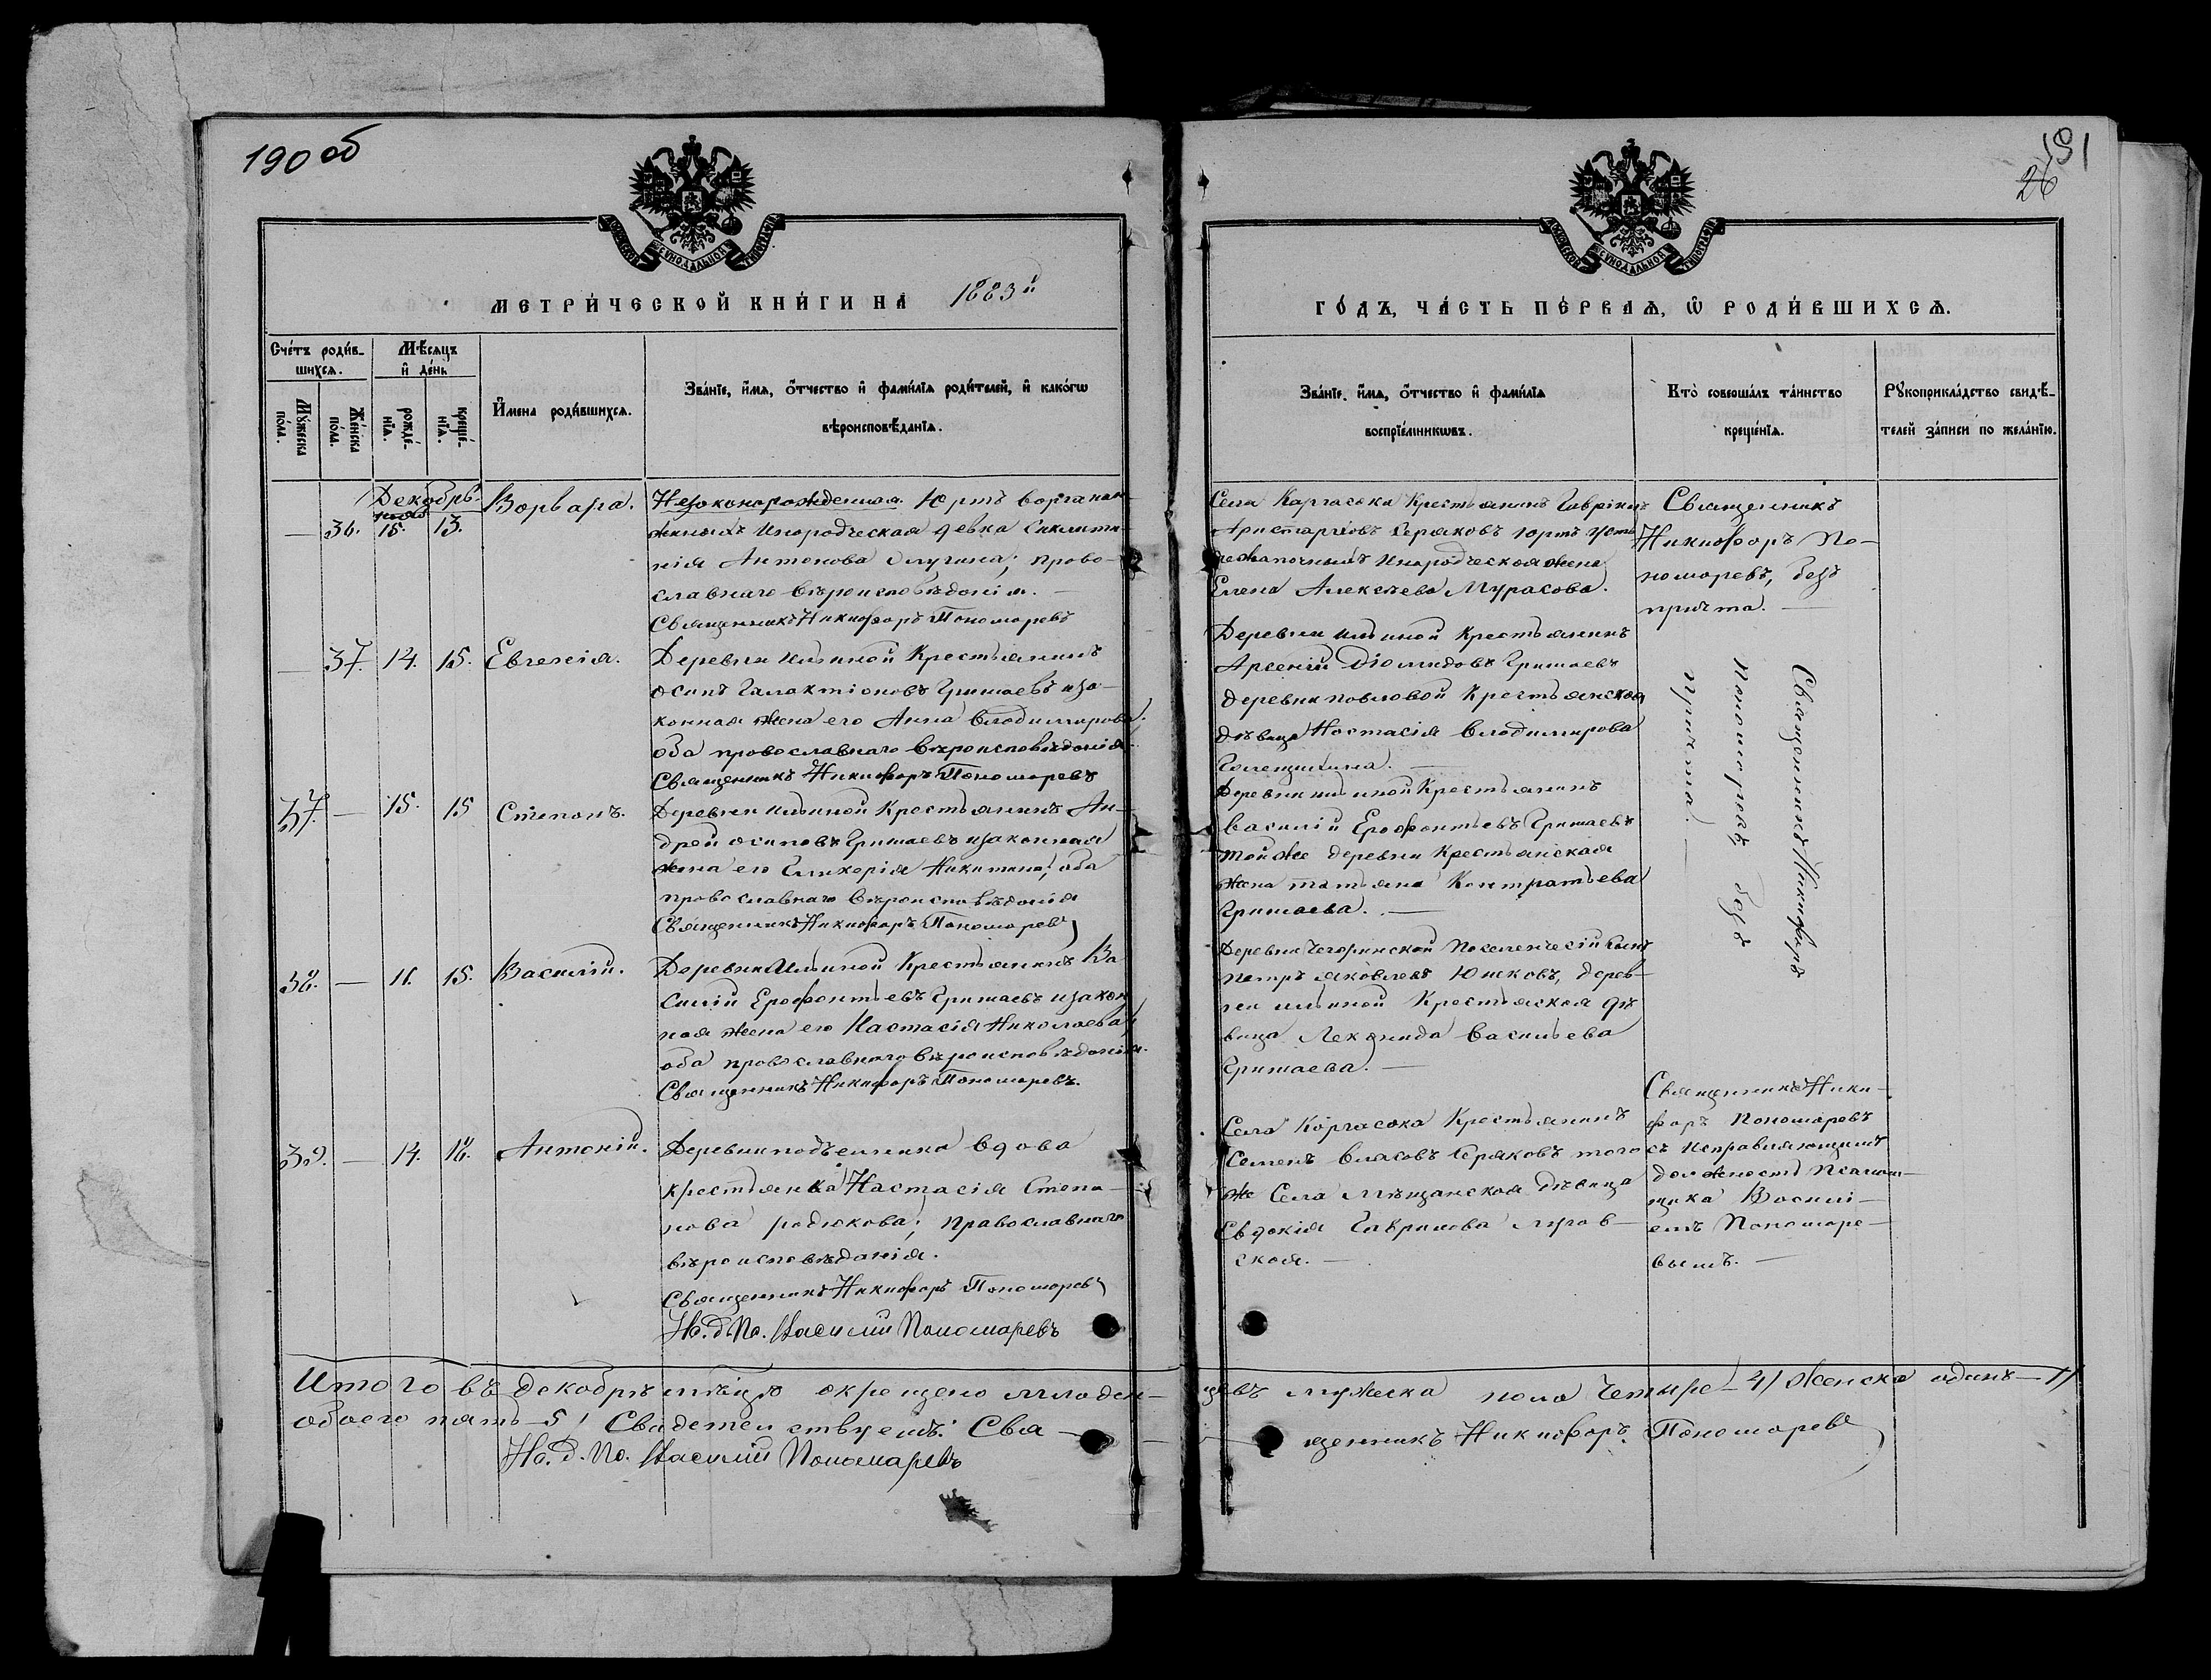 190 об
191
26
МОСКОВСКОЙ СѴНОДАЛЬНОЙ ТИПОГРАФІИ
МОСКОВСКОЙ СѴНОДАЛЬНОЙ ТИПОГРАФІИ
МЕТРИ́ЧЕСКОЙ КНИ́ГИ НА́ 1883й
ГО́ДЪ, ЧА́СТЬ ПЕ́РВАѦ, Ѡ҆ РОДИ́ВШИХСѦ.
Сче́тъ роди́в-
шихсѧ.
Мѣ́сѧцъ
и҆ де́нь
Мꙋ́жеска
по́ла.
Же́нска
по́ла.
рожде́-
нїѧ.
креще́-
нїѧ.
И҆мена роди́вшихсѧ.
Зва́нїе, и҆́мѧ, о҆́тчество и҆ фами́лїѧ роди́телей, и҆ како́гѡ
вѣроисповѣ́данїѧ.
Зва́нїе, и҆́мѧ, о҆́тчество и҆ фами́лїѧ
воспрїе́мникѡвъ.
Кто̀ соверша́лъ та́инство
креще́нїѧ.
Рꙋкоприкла́дство свидѣ́-
телей за́писи по жела́нїю.
Декабрь
— 36. 15. 13. Ворвара.
Незаконорожденная. Юртъ
инородческая девка
нія Антонова; право-
славнаго вѣроисповѣданія. —
Священникъ Никифоръ Пономоревъ
Села Каргасока Крестьянинъ
Аристарховъ юртъ
инородческая жена
Елена Алексѣева Мурасова.
Священникъ
Никифоръ По-
номоревъ, безъ
причта. —
— 37. 14. 15. Евгенія.
Деревни Ильиной Крестьянинъ
Осипъ Галактіоновъ Гришаевъ иза-
конная жена его Анна Владимирова.
оба провославнаго вѣроисповѣданія.
Священникъ Никифоръ Пономоревъ
Деревни Ильиной Крестьянинъ
Арсеній Діомидовъ Гришаевъ
деревни Повловой Крестьянская
дѣвица Ностасія Владимирова
Голещихина. —
37. — 15. 15 Степонъ.
Деревни Ильиной Крестьянинъ Ан-
дрей Осиповъ Гришаевъ изаконная
жена его Гликерія Никитина; оба
провославнаго вѣроисповѣданія
Священникъ Никифоръ Пономоревъ
Деревни Ильиной Крестьянинъ
Василій Ерофонтьевъ Гришаевъ
тойже деревни Крестьянская
жена Татьяна Контратьева
Гришаева. —
Священникъ Никифоръ
Пономоревъ безъ
причта. —
38. — 11. 15. Василій.
Деревни Ильиной Крестьянинъ Ва
силій Ерофонтьевъ Гришаевъ изакон
ная жена его Настасія Николаева;
оба провославнаго вѣроисповѣданія.
Священникъ Никифоръ Пономоревъ.
Деревни поселенческій сынъ
Петръ Яковлевъ Юшковъ, дерев-
ни Ильиной Крестьянская дѣ
вица Леконида Васильева
Гришаева. —
39. — 14. 18. Антоній.
Деревни подъельника вдова
крестьянка Настасія Степа-
нова Родюкова; Православнаго
вѣроисповѣданія.
Священникъ Никифоръ Пономоревъ
И.д.Пс. Василій Пономаревъ
Села Коргасока Крестьянинъ
Семенъ Власовъ того
же Села мѣщанская дѣвица
Евдокія Гаврилова
ская. —
Священникъ Ники-
форъ Пономаревъ
съ исправляющимъ
должность Псалом-
щика Васили-
емъ Пономаре-
вымъ. —
Итого въ декобрѣ мѣсяцѣ окрещено младен-
цевъ мужеска пола Четыре — 4/ Женска одинъ — 1/
обоего пять — 5/ Свидетельствуемъ: Свя-
щенникъ Никифоръ Пономоревъ
И.д.Пс. Василій Пономаревъ